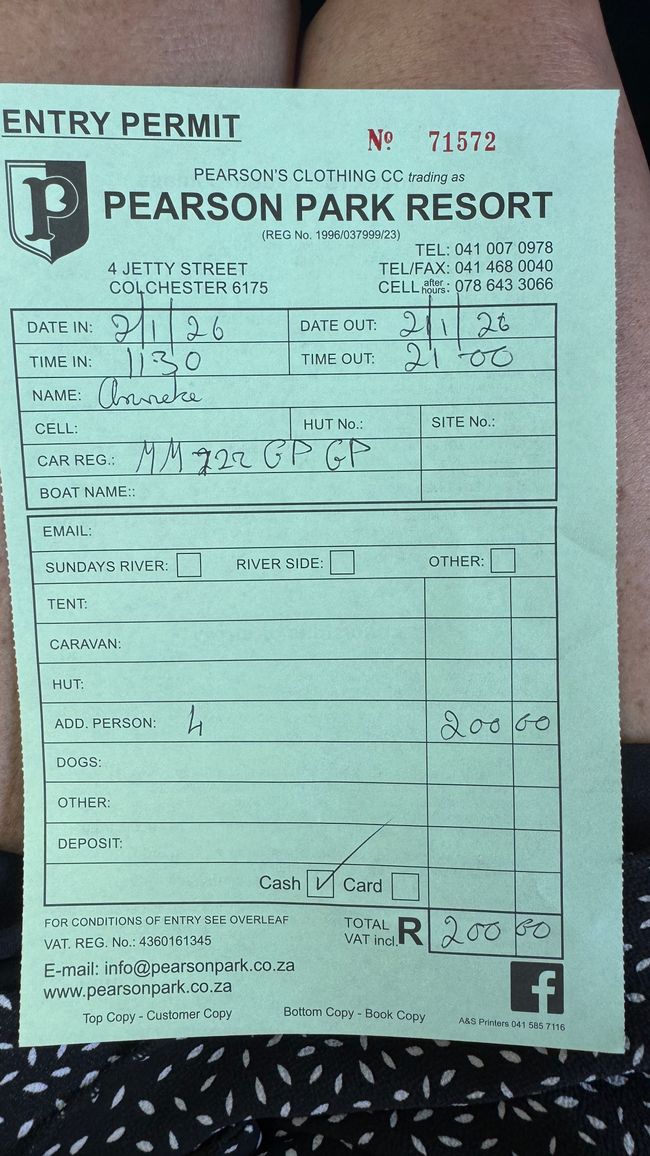 ENTRY PERMIT
Nº 71572
PEARSON'S CLOTHING CC trading as
P PEARSON PARK RESORT
(REG No. 1996/037999/23)
TEL: 041 007 0978
4 JETTY STREET TEL/FAX: 041 468 0040
COLCHESTER 6175 CELL after hours: 078 643 3066
DATE IN: 2/1/26 DATE OUT: 2/1/26
TIME IN: 11:30 TIME OUT: 21-00
NAME:
CELL: HUT No.: SITE No.:
CAR REG.: MM 722 GP GP
BOAT NAME::
EMAIL:
SUNDAYS RIVER: RIVER SIDE: OTHER:
TENT:
CARAVAN:
HUT:
ADD. PERSON: 4 200 00
DOGS:
OTHER:
DEPOSIT:
Cash ✓ Card
FOR CONDITIONS OF ENTRY SEE OVERLEAF TOTAL
VAT. REG. No.: 4360161345 VAT incl. R 200 00
E-mail: info@pearsonpark.co.za
www.pearsonpark.co.za f
Top Copy - Customer Copy Bottom Copy - Book Copy A&S Printers 041 585 7116